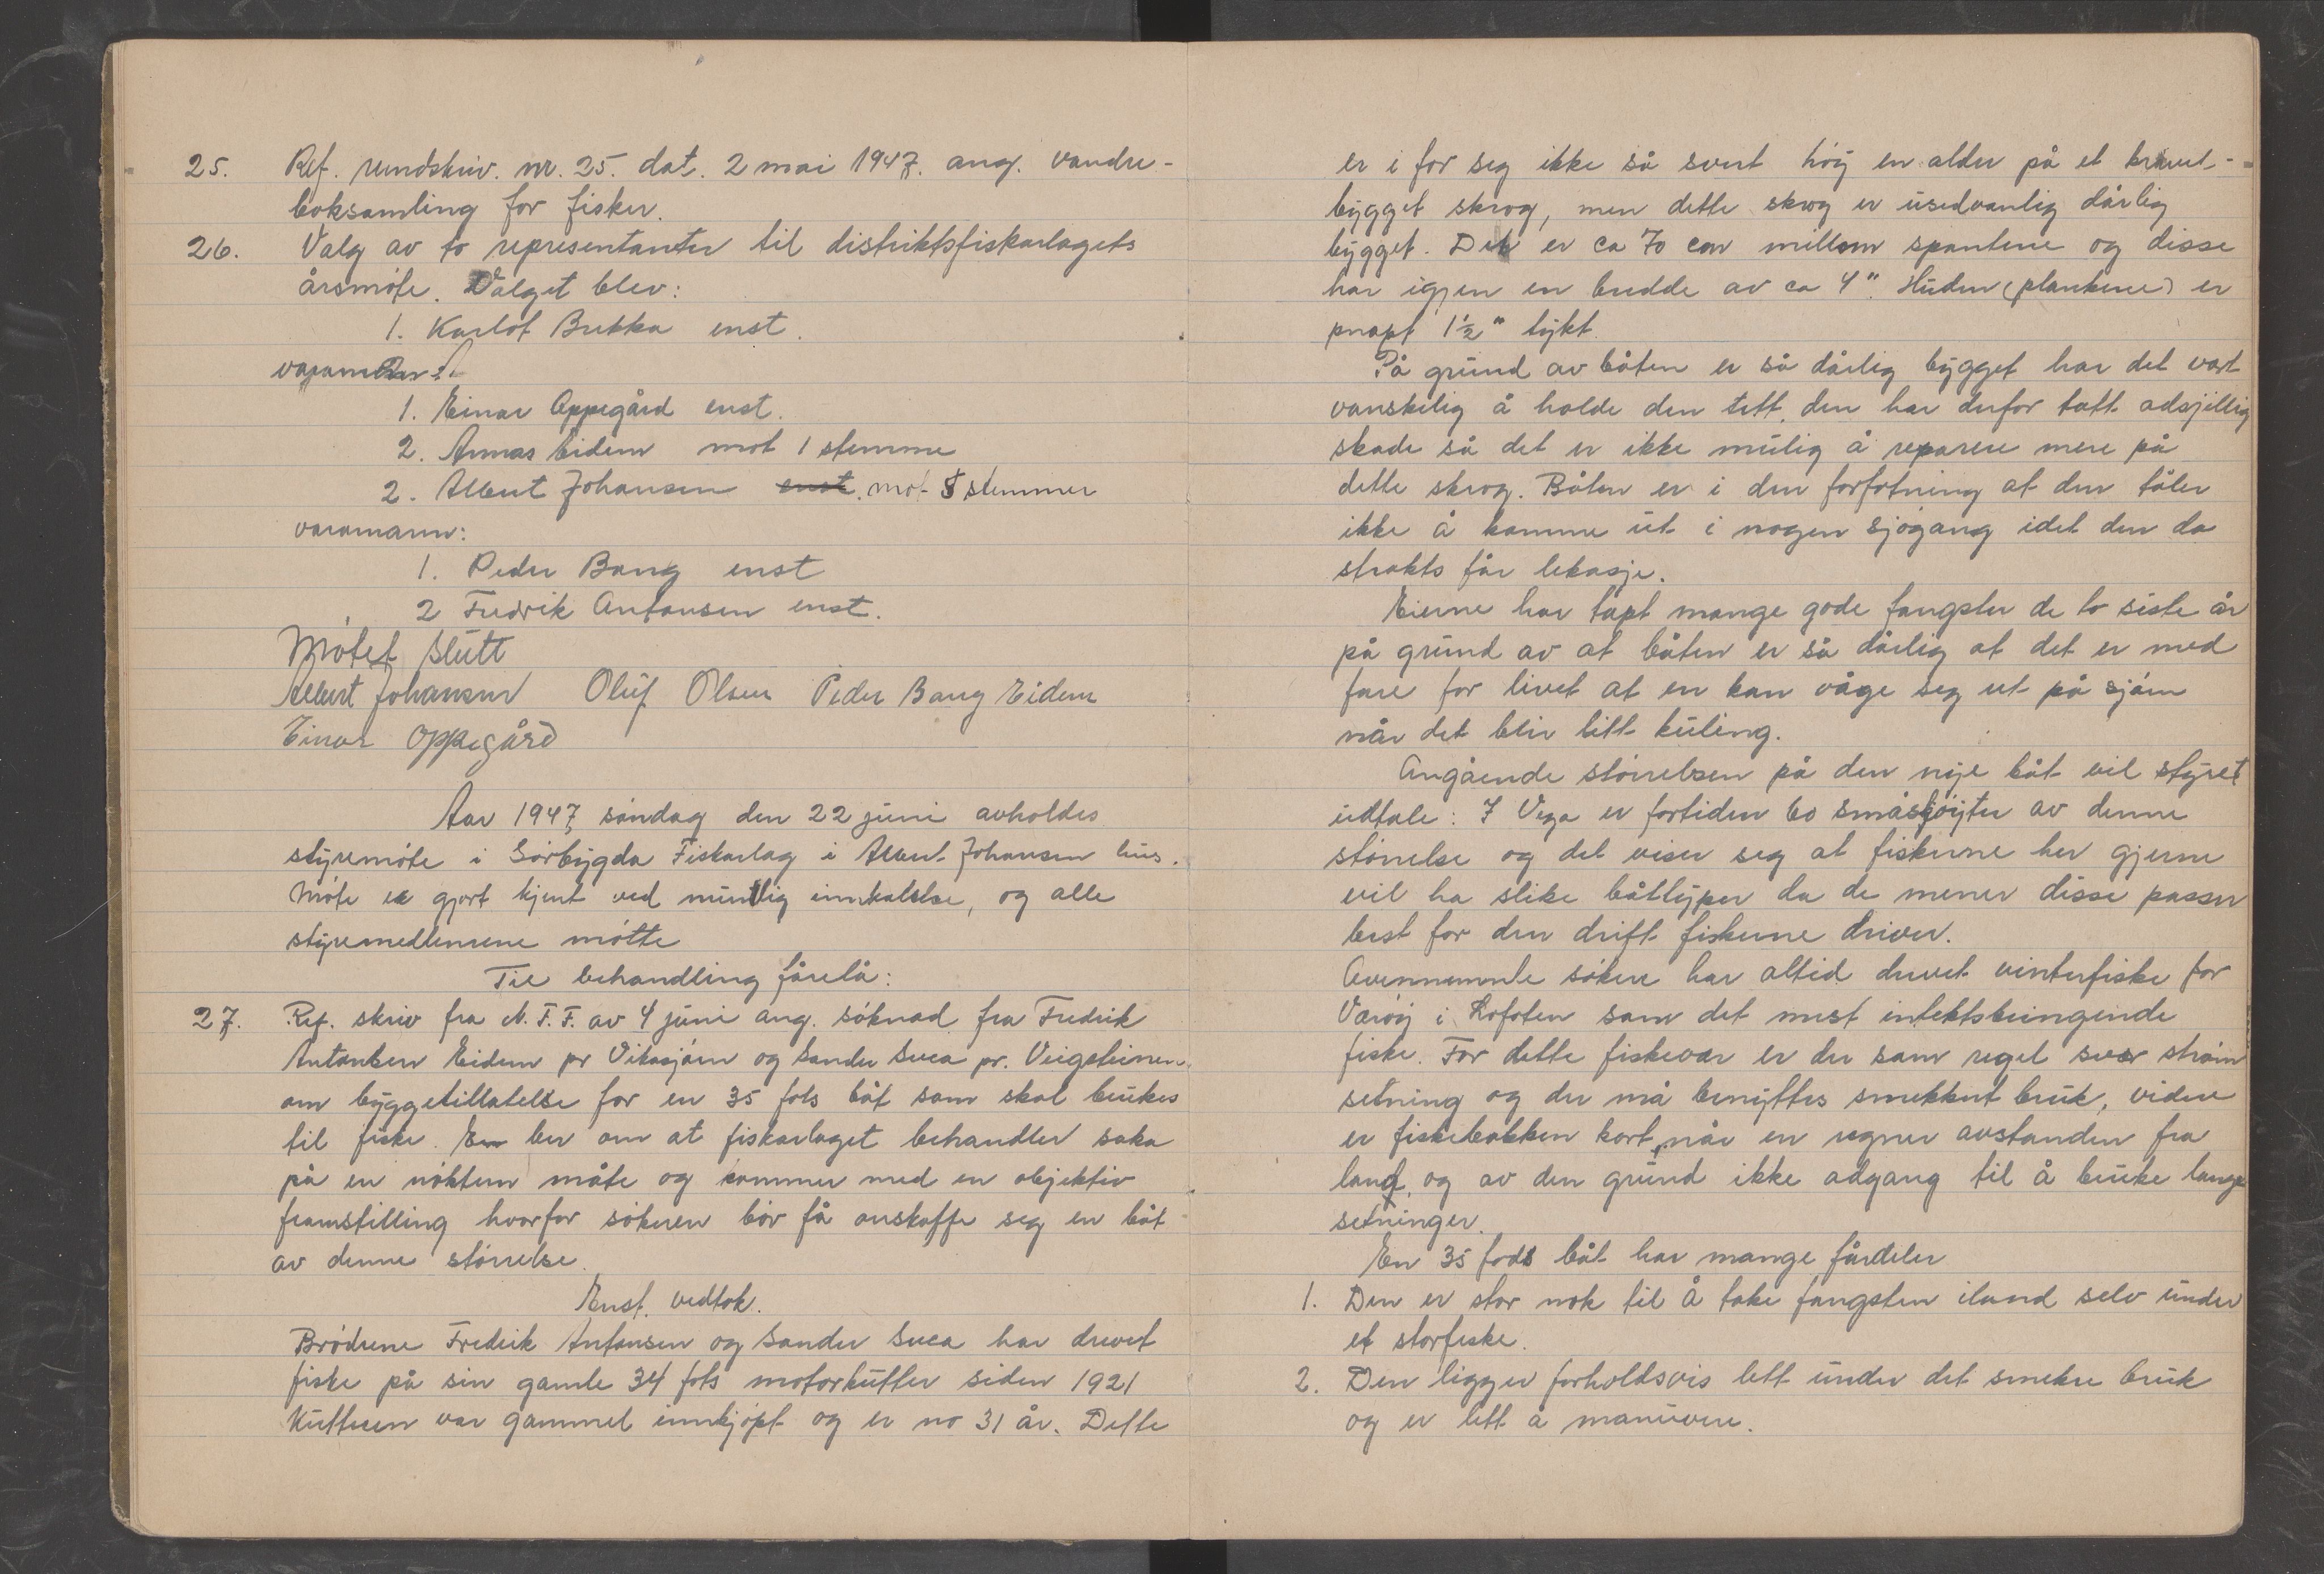 25. Ref. rundskriv. nr. 25. dat. 2 mai 1947. ang. vandre-
boksamling for fisker.
26. Valg av to representanter til distriktsfiskarlagets
årsmøte. Valget blev:
1. Karlot Brekka enst.
varamann:
1. Einar Oppegård enst.
2. Annas Eidem mot 1 stemme
2. Albert Johansen enst. mot 5 stemmer
varamann:
1. Peder Bang enst
2 Fredrik Antonsen enst.
Møtet slutt
Albert Johansen Oluf Olsen Peder Bang Eidem
Einar Oppegård
Aar 1947 søndag den 22 juni avholdes
styremøte i Sørbygda Fiskarlag i Albert Johansen hus.
Møte er gjort kjent ved muntlig innkalelse, og alle
styremedlemene møtte
Til behandling førelå:
27. Ref. skriv fra N.F.F. av 4 juni ang. søknad fra Fredrik
Antonsen Eidem pr Vikasjøen og Sander Suca pr. Veigsteinen.
om byggetillatelse for en 35 fots båt som skal brukes
til fiske. Em ber om at fiskarlaget behandler saka
på en nøktern måte og kommer med en objektiv
framstilling hvorfor søkeren bør få anskaffe seg en båt
av denne størrelse.
Enst. vedtok.
Brødrene Fredrik Antonsen og Sander Suca har drevet
fiske på sin gamle 34 fots motorkutter siden 1921
Kutteren var gammel innkjøpt og er no 31 år. Dette
er i for seg ikke så svert høy en alder på et kravel-
bygget skrog, men dette skrog er usedvanlig dårlig
bygget. Det er ca 70 cm mellom spantene og disse
har igjen en bredde av ca 4". Huden (plankene) er
knapt 1½" tykt.
På grund av båten er så dårlig bygget har det vært
vanskelig å holde den tett, den har derfor tatt adsjillig
skade så det er ikke mulig å reparere mere på
dette skrog. Båten er i den forfatning at den tåler
ikke å komme ut i nogen sjøgang idet den da
strakts får lekasje.
Eierne har tapt mange gode fangster de to siste år
på grund av at båten er så dårlig at det er med
fare for livet at en kan våge seg ut på sjøen
når det blir litt kuling.
Angående størrelsen på den nye båt vil styret
udtale: I Vega er fortiden 60 småskøyter av denne
størrelse og det viser seg at fiskerne her gjerne
vil ha slike båttyper da de mener disse passer
best for den drift fiskerne driver.
Ovennemnte søkere har altid drevet vinterfiske for
Værøy i Lofoten som det mest intektsbringende
fiske. For dette fiskevær er der som regel svær strøm
setning og der må benyttes smekkert bruk, videre
er fiskebakken kort, når en regner avstanden fra
land, og av den grund ikke adgang til å bruke lange
setninger.
En 35 fods båt har mange fårdeler
1. Den er stor nok til å take fangsten iland selv under
et storfiske.
2. Den ligger forholdsvis lett under det smekre bruk
og er lett å manuvere.